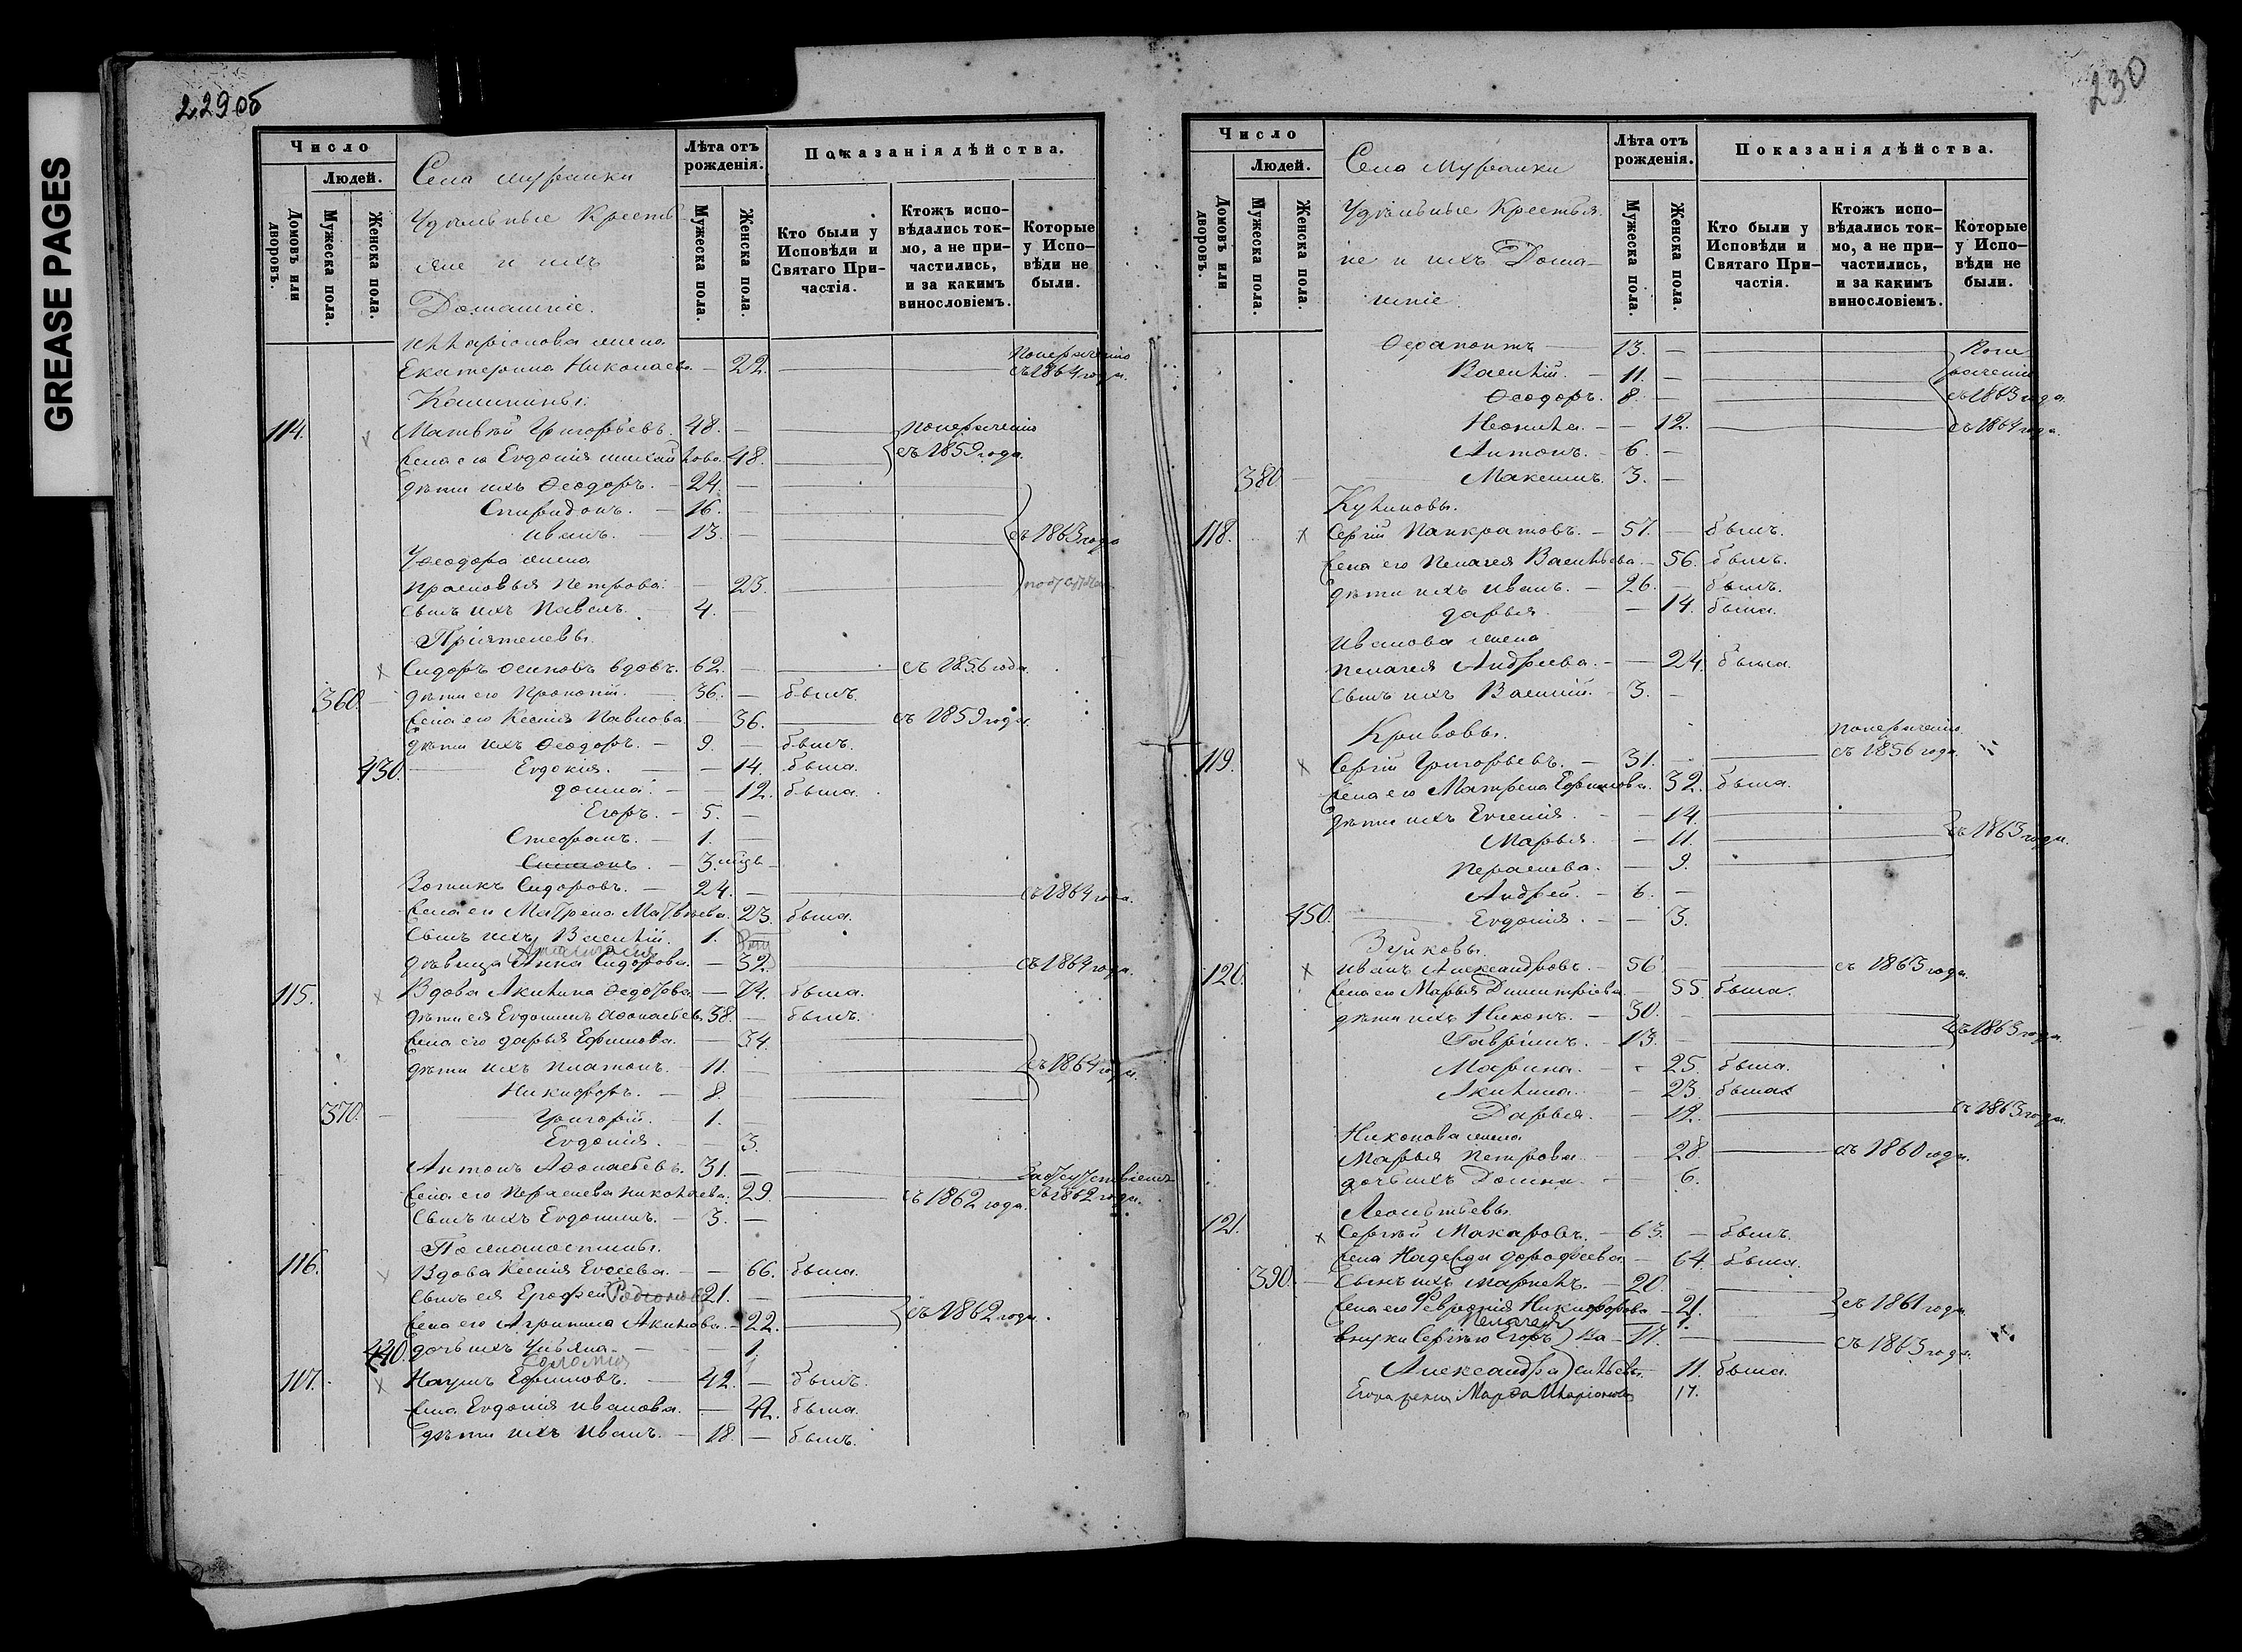 GREASE PAGES
229об
Число
Людей.
Домовъ или дворовъ.
Мужеска пола.
Женска пола.
Села Муранки
Удѣльные Крестья
яне и ихъ
Домашніе.
Лѣта отъ рожденія.
Мужеска пола.
Женска пола.
Показанія дѣйства.
Кто были у Исповѣди и Святаго При-частія.
Ктожъ испо-вѣдались ток-мо, а не при-частились, и за какимъ винословіемъ.
Которые у Испо-вѣди не были.
Илларіонова жена
Екатерина Николаева. — 22. съ 1864 года.
Калинины.
114. Матвѣй Григорьевъ. 48. —
жена его Евдокія Михайлова. 48. съ 1859 года.
дѣти ихъ Ѳеодоръ. — 24. —
Спиридонъ. — 16. —
Иванъ. — 13. — съ 1863 года
Ѳеодора жена
Прасковья Петрова. — 23.
Сынъ ихъ Павелъ. 4. —
Пріятелевы.
Сидоръ Осиповъ вдовъ. 62. — съ 1856 года.
360. — дѣти его Прокопій. — 36. — былъ
жена его Ксенія Павлова. — 36. съ 1859 года.
дѣти ихъ Ѳеодоръ. — 9. — былъ.
430. Евдокія. — 14. была.
Домна. — 12. была.
Егоръ. — 5. —
Стефанъ. — 1. —
Симонъ. — 3. мѣс. —
Зотикъ Сидоровъ. — 24. — съ 1864 года.
жена его Матрена Матвѣева. 23. была.
Сынъ ихъ Василій. 1.
дѣвица Анна Сидорова. — 32. съ 1864 года.
115. Вдова Акилина Ѳедотова — 74. была.
дѣти ея Евдокимъ Аѳонасьевъ 38. — былъ.
жена его Дарья Ефимова. — 34.
дѣти ихъ Платонъ. — 11. — съ 1864 года.
Никифоръ. — 8. —
370. — Григорій. — 1. —
Евдокія. — 3.
Антонъ Аѳонасьевъ. 31. — За отсутствіемъ
жена его Парасева Николаева. 29. съ 1862 года. съ 1862 года.
Сынъ ихъ Евдокимъ. — 3. —
116. Вдова Ксенія Евсеева. — 66. была.
Сынъ ея Ерофей Родіоновъ 21. —
жена его Агрипина Акилова. — 22. съ 1862 года.
440. дочь ихъ Ульяна — 1.
Соломія
117. Наумъ Ефимовъ. — 42. — былъ.
жена Евдокія Иванова. — 42. была.
дѣти ихъ Иванъ. — 18. — былъ.
230
Число
Людей.
Домовъ или дворовъ.
Мужеска пола.
Женска пола.
Села Муранки
Удѣльные Крестья
не и ихъ Дома-
шніе
Лѣта отъ рожденія.
Мужеска пола.
Женска пола.
Показанія дѣйства.
Кто были у Исповѣди и Святаго При-частія.
Ктожъ испо-вѣдались ток-мо, а не при-частились, и за какимъ винословіемъ.
Которые у Испо-вѣди не были.
Ѳерапонтъ — 13. —
Василій. — 11. —
Ѳеодоръ. 8. — съ 1863 года.
Неонила. — — 12. съ 1864 года.
Антонъ. — 6. —
380. — Максимъ. 3. —
Куликовы.
118. Сергій Панкратовъ. — 57. — былъ.
жена его Пелагея Васильева. — 56. былъ.
дѣти ихъ Иванъ. — 26. — былъ.
Дарья. — 14. была.
Иванова жена
Пелагея Андреева. — — 24. была.
Сынъ ихъ Василій. — 3. —
Кривовы.
119. Сергій Григорьевъ. — 31. — съ 1856 года.
жена его Матрена Ефимова. 32. была.
дѣти ихъ Евгенія. — — 14.
Марья. — — 11. съ 1863 года.
Парасева. — — 9.
Андрей. — 6. —
450. Евдокія. — — 3.
Зуйковы.
120. Иванъ Александровъ. — 56 съ 1863 года.
жена его Марья Димитріева. — 55. была.
дѣти ихъ Никонъ. — 30. — съ 1863 года.
Гавріилъ. — 13. —
Марина. — — 25. была.
Акилина. — — 23. была
Дарья. — — 19. съ 1863 года.
Никонова жена
Марья Петрова. — 28. съ 1860 года.
дочь ихъ Домна. — — 6.
Леонтьевы.
121. Сергѣй Макаровъ. — 63. — былъ.
жена Надежда Дорофеева — 64. была.
390. — Сынъ ихъ Маркелъ. — 20.
жена его Февронія Никифорова — 21. съ 1861 года.
Пелагея 1.
внуки Сергѣю Егоръ — 17. — съ 1863 года.
Александра 11. была.
Егора жена Марѳа Иларіонова 17.